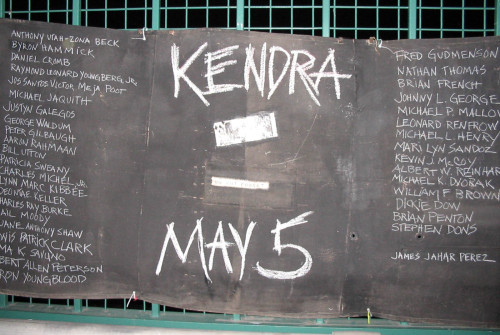 ANTHONY UTAH-ZONA BECK
BYRON HAMMICK
DANIEL CROMB
RAYMOND LEONARD YOUNGBERG, JR.
JOS SANTOS VICTOR MEJA POOT
MICHAEL JAQUITH
JUSTYN GALEGOS
GEORGE WALDUM
PETER GILBAUGH
AARIN RAHMAAN
BILL UTTON
PATRICIA SWEANY
CHARLES MICHEL, JR.
LYNN MARC KIBBEE
GEORGE KELLER
CHARLES RAY BURKE
AIL MOODY
JANE ANTHONY SHAW
PATRICK CLARK
MA K. SAVINO
BERT ALLEN PETERSON
RON YOUNGBLOOD
KENDRA
MAY 5
FRED GUDMENSON
NATHAN THOMAS
BRIAN FRENCH
JOHNNY L. GEORGE
MICHAEL P. MALLOY
LEONARD RENFROW
MICHAEL L HENRY
MARILYN SANDOZ
KEVIN J. MCCOY
ALBERT W. REINHAR
MICHAEL K DVORAK
WILLIAM F BROWN
DICKIE DOW
BRIAN PENTON
STEPHEN DONS
JAMES JAHAR PEREZ